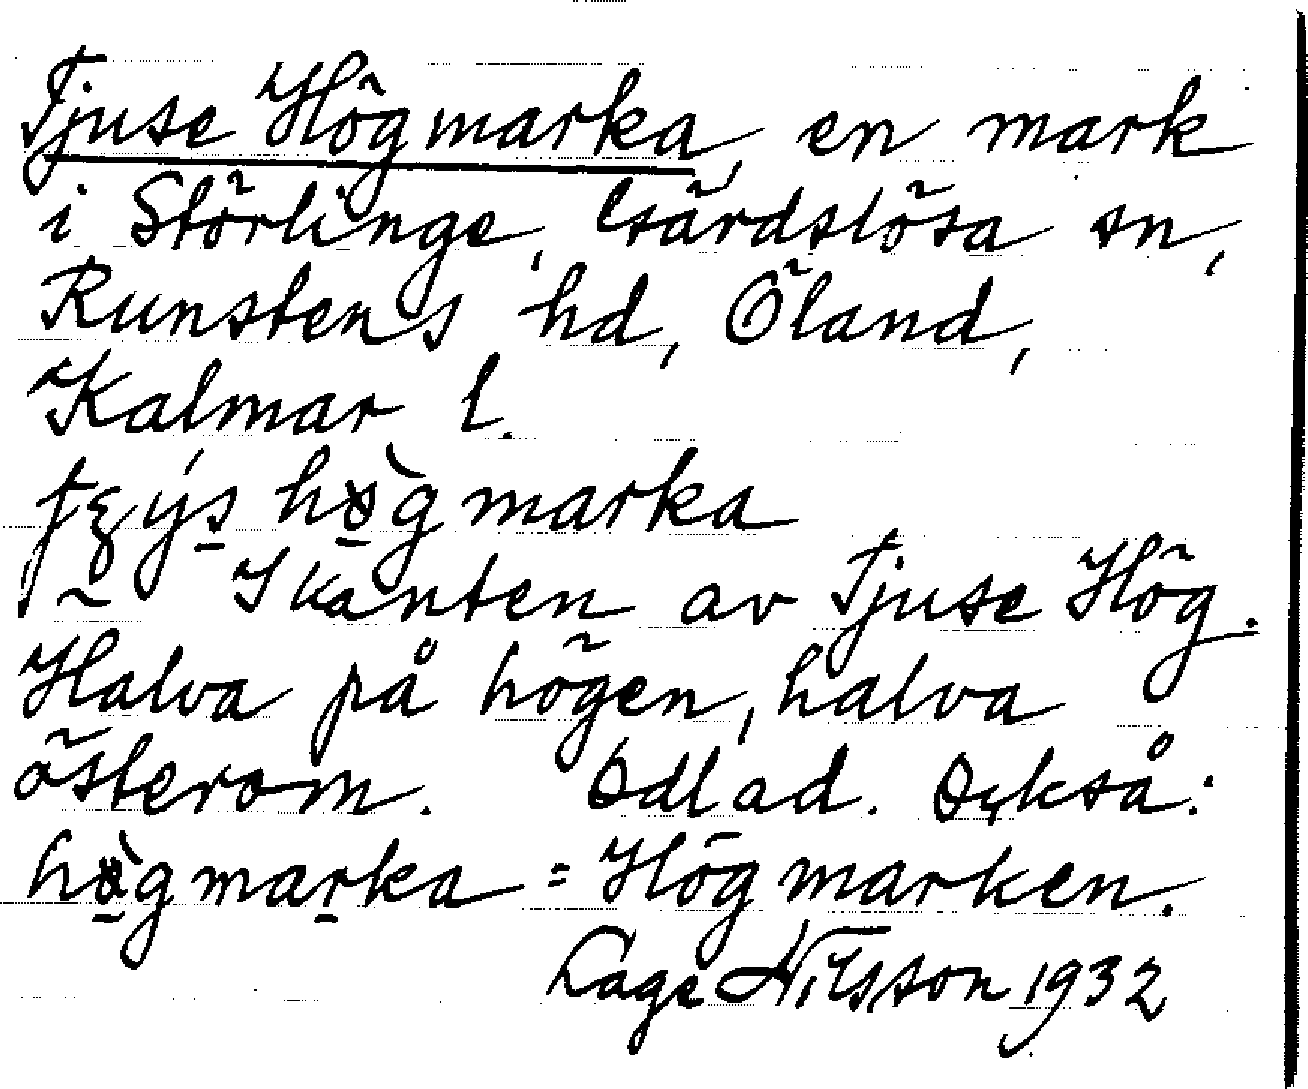 Tjuse Högmarka, en mark
i Störlinge, Gärdslösa sn,
Runstens hd, Öland,
Kalmar l.
högmarka
I kanten av Tjuse Hög.
Halva på högen, halva
österom. Odlad. Också:
högmarka = Högmarken.
Lage Nilsson 1932